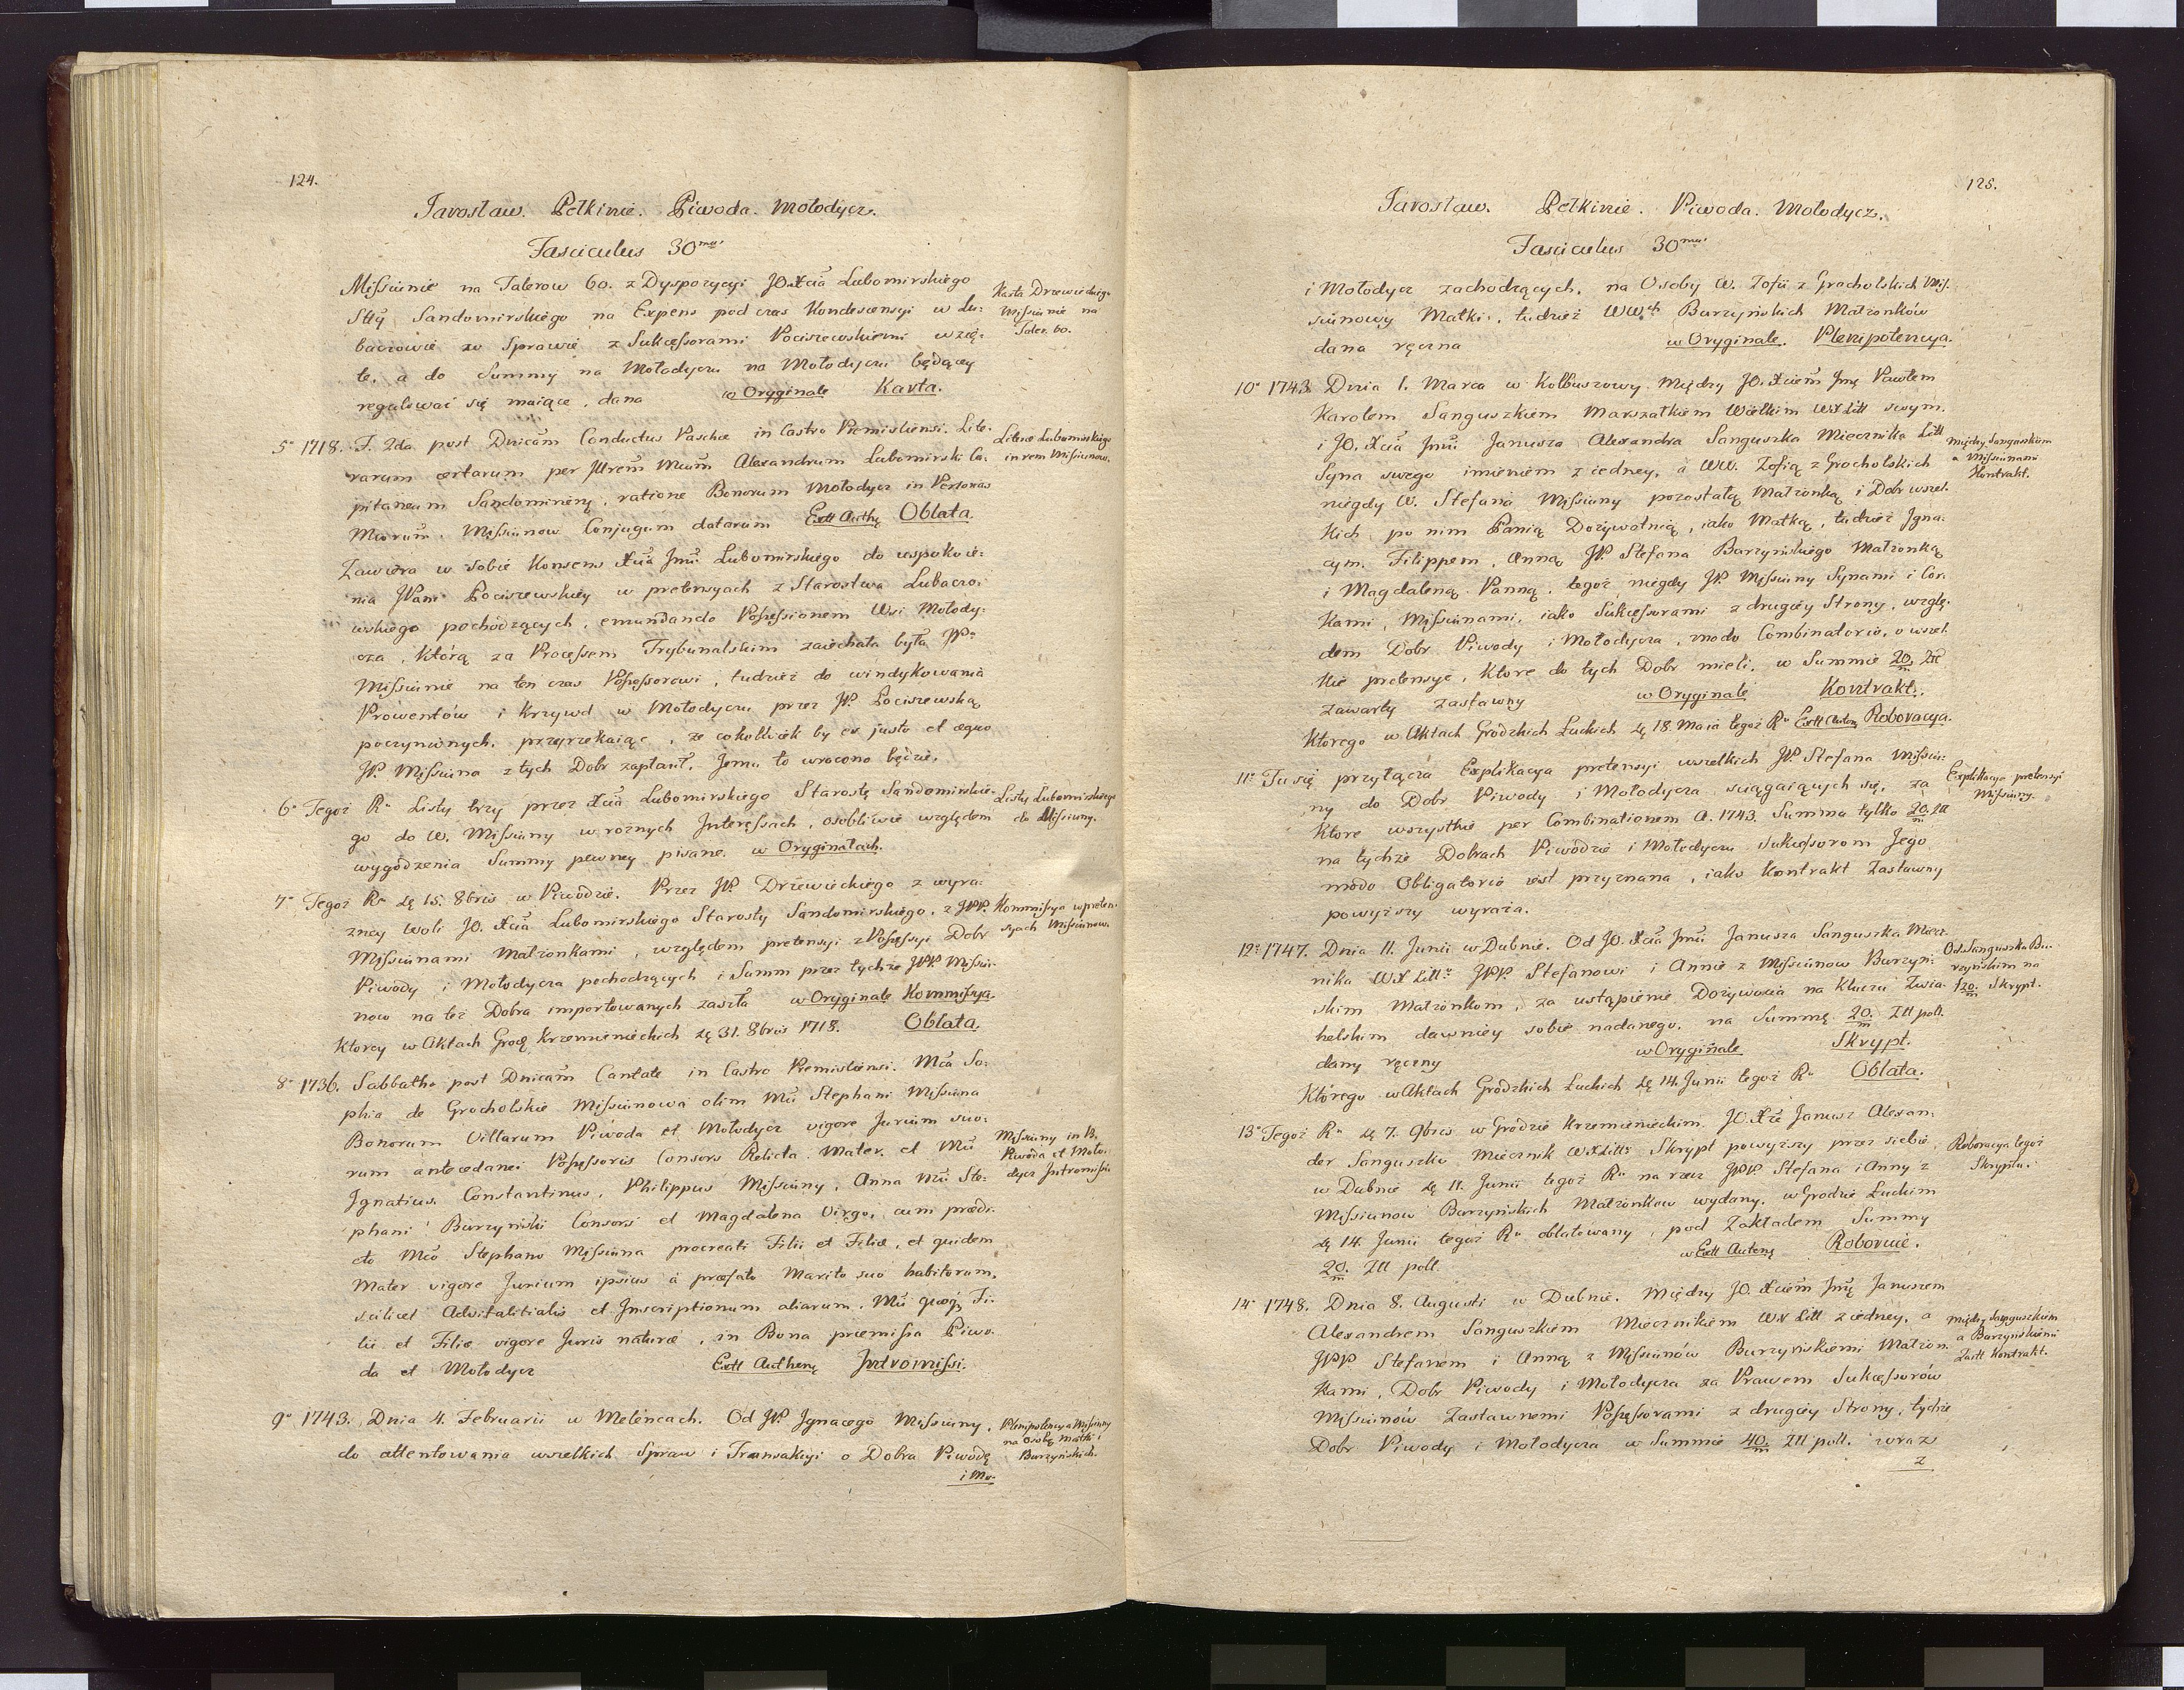 124.
Jarosław. Pełkinie. Piwoda. Mołodycz.
Fasciculus 30mus
Missiunie na Talerow 60. z Dyspozycyi JO. Xcia Lubomirskiego
Stty Sandomirskiego na Expens pod czas Kondescensyi w Lu:
baczowie w Sprawie z Sukcessorami Pociszewskiemi wzię:
te, a do Summy na Mołodyczu na Mołodyczu będącey
regulować się maiące, dana w Oryginale Karta.
Karta Drzewieckiego
Missiunie na
Taler. 60.
5o 1718. F. 2da post Dnicam Conductus Paschæ in Castro Præmisliensi. Lite-
rarum certarum per Illrem Mcum Alexandrum Lubomirski Ca-
pitaneum Sandomirieng, ratione Bonorum Mołodycz in Personas
Mcorum Missiunow Conjugum datarum Extt Authg Oblata
Literæ Lubomirskiego
in rem Missiunow.
Zawiera w sobie Konsens Xcia Jmci Lubomirskiego do uspokoie:
nia JPani Pociszewskiey w pretensyach z Starostwa Lubaczo:
wskiego pochodzących, emundando Possessionem Wsi Mołody:
cza, którą za Processem Trybunalskim zaiechała była JPu
Missiunie na ten czas Possessorowi, tudzież do windykowania
Prowentów i Krzywd w Mołodyczu przez JP. Pociszewską
poczynionych, przyrzekaiąc, że cokolwiek by ex justo et æquo
JP. Missiuna z tych Dobr zapłacił, Jemu to wrocono będzie.
6o Tegoż Ru Listy trzy przez Xcia Lubomirskiego Starostę Sandomirskie-
go do W. Missiuny w rożnych Interessach, osobliwie względem
wygodzenia Summy pewney pisane. w Oryginałach.
Listy Lubomirskiego
do Missiuny.
7o Tegoż Ru dę 15. 8bris w Piwodzie. Przez JP. Drzewieckiego z wyra:
zney Woli JO. Xcia Lubomirskiego Starosty Sandomirskiego, z JPP.
Missiunami Małżonkami, względem pretensyi z Possessyi Dobr
Piwody i Mołodycza pochodzących i Summ przez tychże JPP. Missiu-
now na też Dobra importowanych zaszła w Oryginale Kommissya.
Ktorey w Aktach Grodz. Krzemienieckich dę 31. 8bris 1718. Oblata.
Kommissya w preten-
syach Missiunow.
8o 1736. Sabbatho post Dnicam Cantate in Castro Præmisliensi. Mca So-
phia de Grocholskie Missiunowa olim Mci Stephani Missiuna
Bonorum Villarum Piwoda et Mołodycz vigore Jurium suo:
rum antecedanei Possessoris Consors Relicta Mater, et Mci
Ignatius, Constantinus, Philippus Missiuny, Anna Mci Ste:
phani Burzyński Consors et Magdalena Virgo, cum prædi-
cto Mco Stephano Missiuna procreati Filii et Filiæ, et quidem
Mater vigore Jurium ipsius à præfato Marito suo habitorum,
scilicet Advitalitialis et Inscriptionum aliarum, Mci quoq Fi-
lii et Filiæ vigore Juris naturæ, in Bona præmissa Piwo-
da et Mołodycz Extt Autheng Intromissi.
Missiuny in B.
Piwoda et Moło-
dycz Intromissio
9o 1743. Dnia 4. Februarii w Melencach. Od JP. Ignacego Missiuny,
do attentowania wszelkich Spraw i Transakcyi o Dobra Piwodę
i Mo-
Plenipotencya Missiuny
na osobę Matki i
Burzyńskich.
125.
Jarosław. Pełkinie. Piwoda. Mołodycz.
Fasciculus 30mus
i Mołodycz zachodzących, na Osoby W. Zofii z Grocholskich Mis-
siunowy Matki, tudzież WWch Burzyńskich Małżonków
dana ręczna w Oryginale. Plenipotencya.
10o 1743. Dnia 1. Marca w Kolbuszowy. Między JO. Xciem Jmę Pawłem
Karolem Sanguszkiem Marszałkiem Wielkim WXLitt swym,
i JO. Xcia Jmci Janusza Alexandra Sanguszka Miecznika Litt
Syna swego imieniem z iedney, a WW. Zofią z Grocholskich
niegdy W. Stefana Missiuny pozostałą Małżonką i Dobr wszel-
kich po nim Panią Dożywotnią, iako Matką, tudzież Igna-
cym, Filippem, Anną JP. Stefana Burzyńskiego Małżonką
i Magdaleną Panną, tegoż niegdy JP. Missiuny Synami i Cor-
kami, Missiunami, iako Sukcessorami z drugiey Strony, wzglę-
dem Dobr Piwody i Mołodycza, modo Combinatorio, o wszel-
kie pretensye, ktore do tych Dobr mieli, w Summie 20/m Złł
zawarty zastawny w Oryginale Kontrakt.
Ktorego w Aktach Grodzkich Łuckich dę 18. Maia tegoż Ru Extt Auteng Roboracya.
Między Sanguszkiem
a Missiunami
Kontrakt.
11o Tu się przyłącza Explikacya pretensyi wszelkich JP. Stefana Missiu-
ny do Dobr Piwody i Mołodycza sciągaiących się, za
ktore wszystkie per Combinationem A. 1743. Summa tylko 20/m Złł
na tychże Dobrach Piwodzie i Mołodyczu Sukcessorom Jego
modo Obligatorio iest przyznana, iako Kontrakt Zastawny
powyższy wyraża.
Explikacya pretensyi
Missiuny.
12o 1747. Dnia 11. Junii w Dubnie. Od JO. Xcia Jmci Janusza Sanguszka Miecz-
nika WXLitto JPP. Stefanowi i Annie z Missiunow Burzyń-
skim Małżonkom, za ustąpienie Dożywocia na Kluczu Zwia-
helskim dawniey sobie nadanego, na Summę 20/m Złł poll.
dany ręczny w Oryginale Skrypt.
Ktorego w Aktach Grodzkich Łuckich dę 14. Junii tegoż Ru Oblata.
Od Sanguszka Bu-
rzyńskim na
20/m Skrypt.
13o Tegoż Ru dę 7. 9bris w Grodzie Krzemienieckim. JO. Xże Janusz Alexan-
der Sanguszko Miecznik WXLitto Skrypt powyższy przez siebie
w Dubnie dę 11. Junii tegoż Ru na rzecz JPP. Stefana i Anny z
Missiunow Burzyńskich Małżonkow wydany, w Grodzie Łuckim
dę 14. Junii tegoż Ru oblatowany, pod Zakładem Summy
20/m Złł poll. w Extt Auteng Roboruie.
Roboracya tegoż
Skryptu.
14o 1748. Dnia 8. Augusti w Dubnie. Między JO. Xciem Jmę Januszem
Alexandrem Sanguszkiem Miecznikiem WXLitt z iedney, a
JPP. Stefanem i Anną z Missiunów Burzyńskiemi Małżon-
kami, Dobr Piwody i Mołodycza za Prawem Sukcessorów
Missiunów Zastawnemi Possessorami z drugiey Strony, tychże
Dobr Piwody i Mołodycza w Summie 40/m Złł poll. wraz
z
Między Sanguszkiem
a Burzyńskiemi
Zastt Kontrakt.